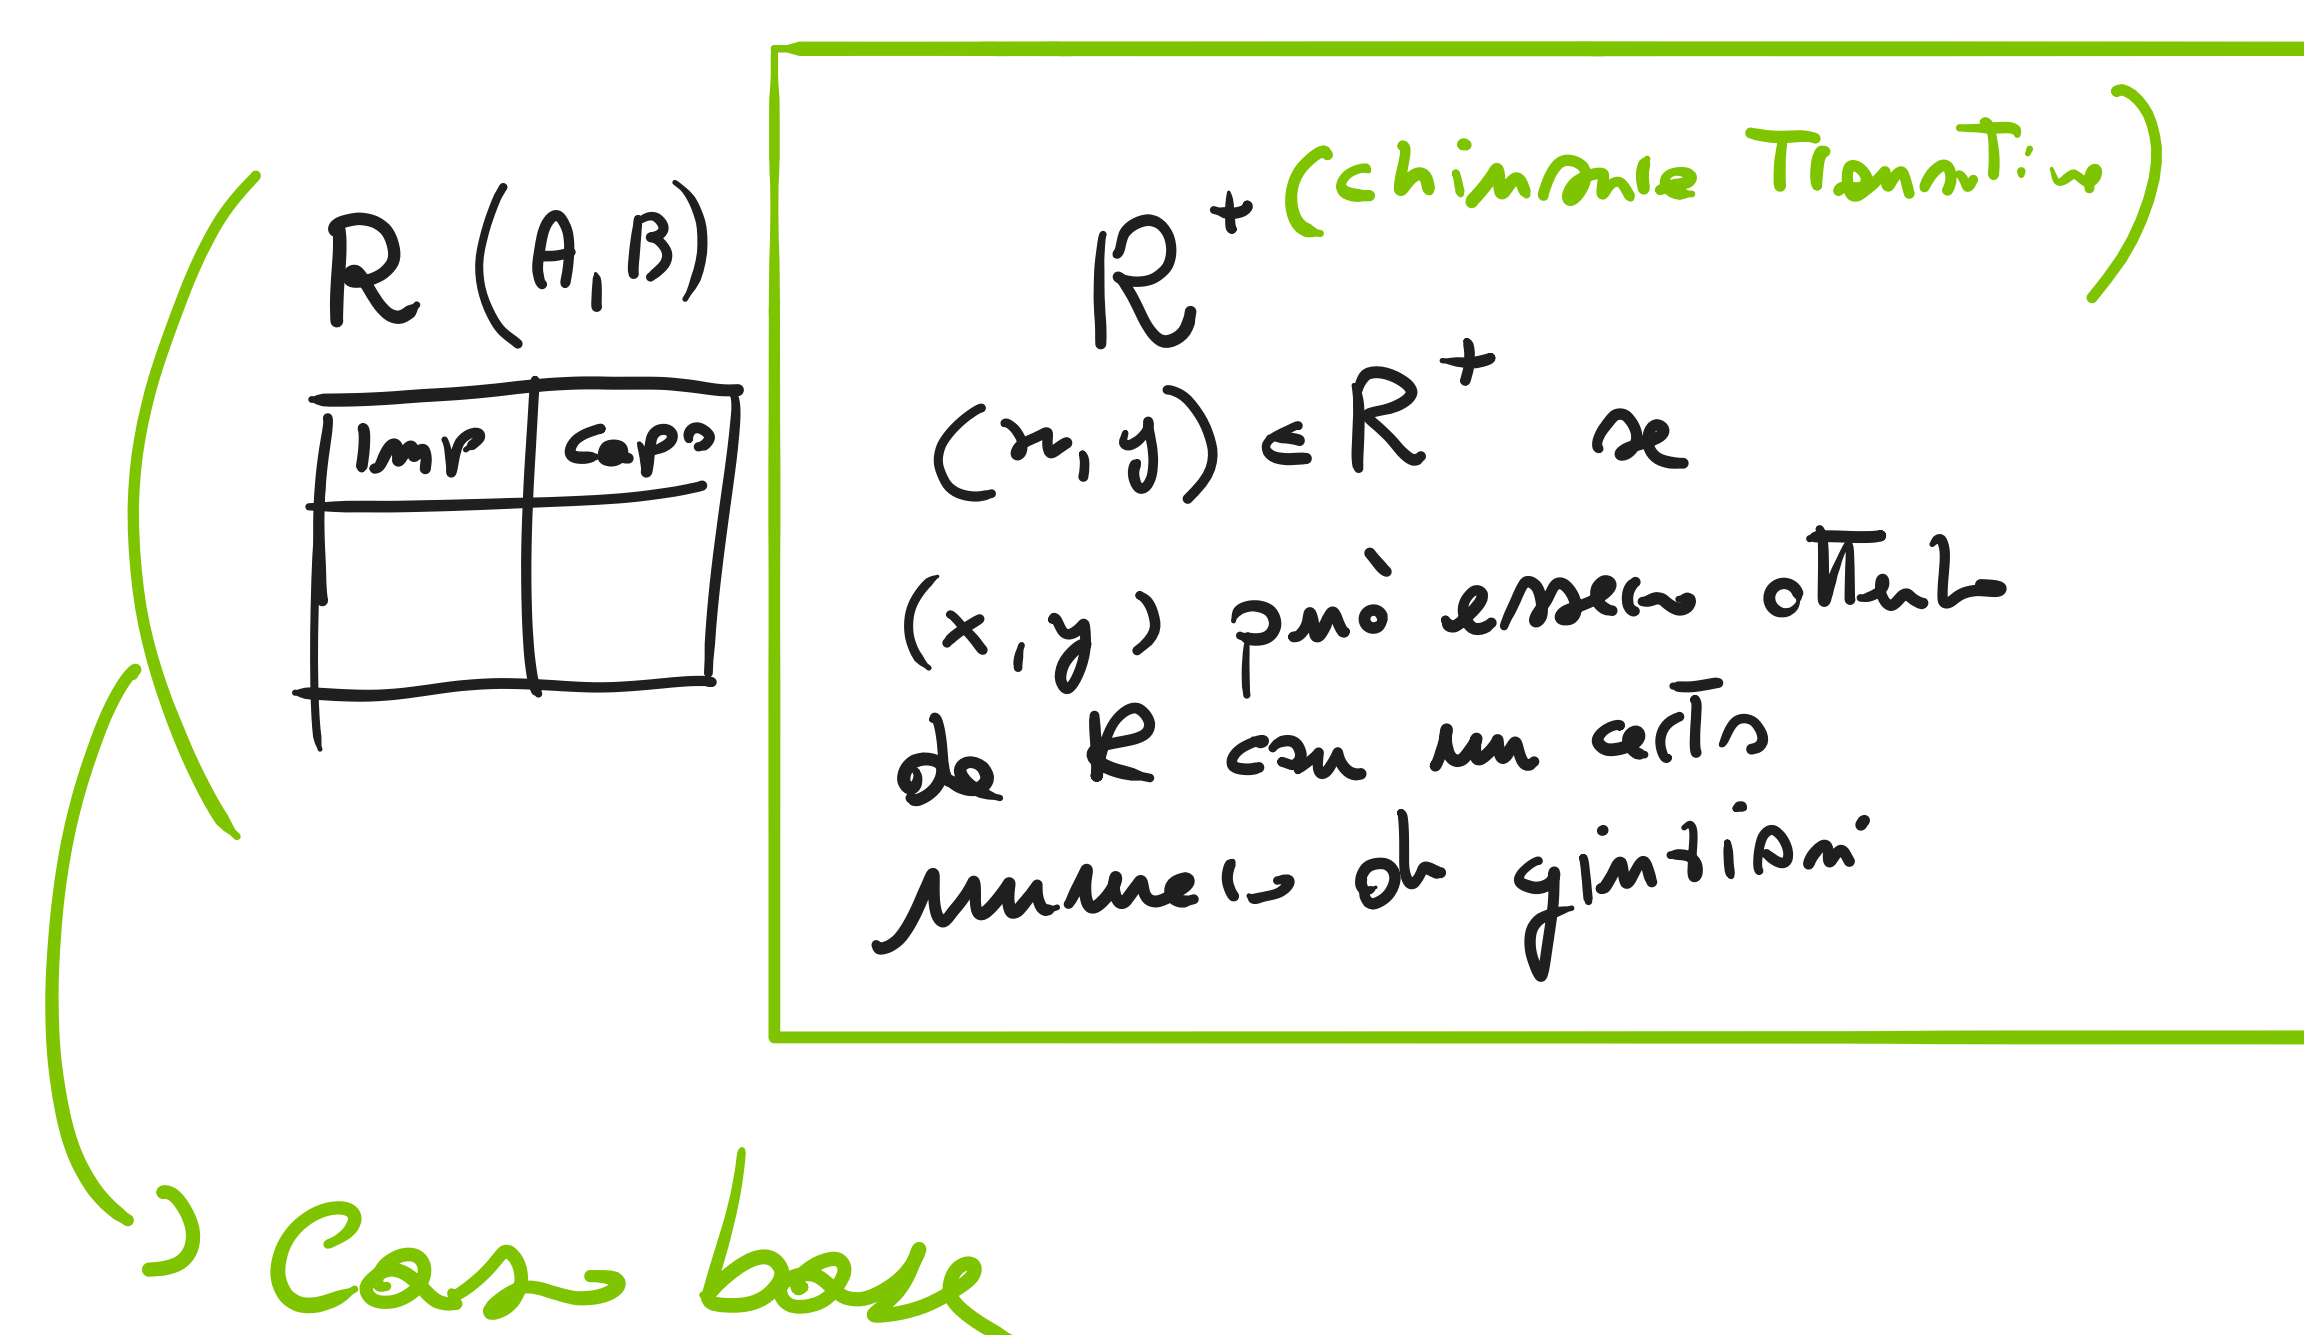 R (A, B)
Imp capo
R⁺ (chiusura Transitiva)
(x, y) ∈ R⁺ se
(x, y) può essere ottenuto
da R con un certo
numero di giunzioni
Caso base